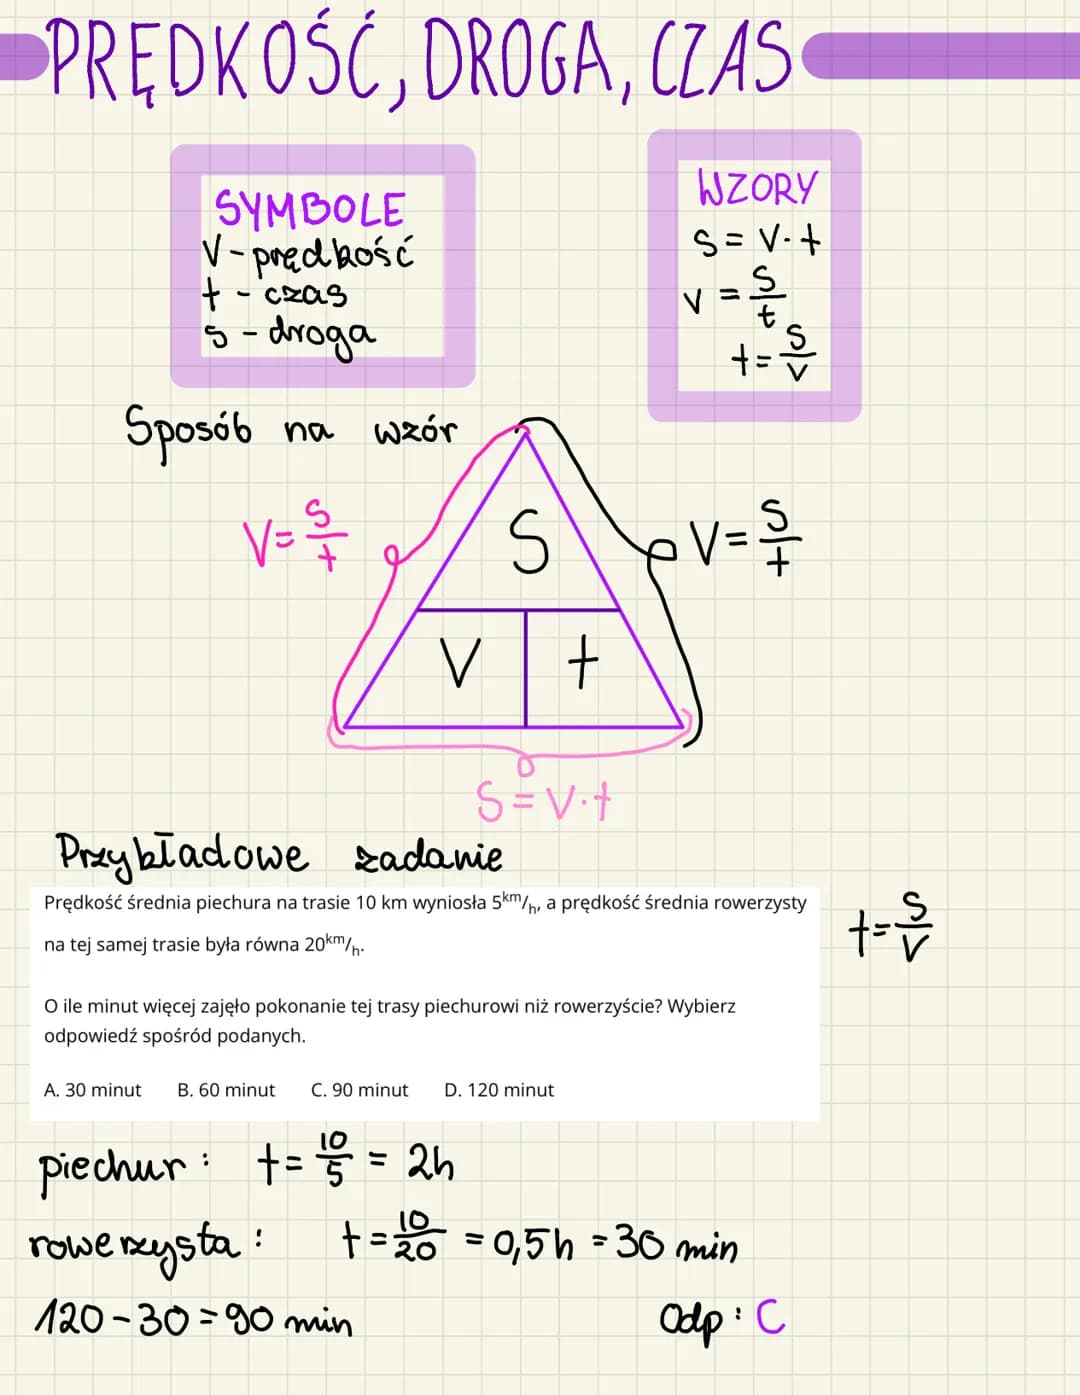 PRĘDKOŚĆ, DROGA, CZAS
SYMBOLE
V - prędkość
t - czas
s - droga
WZORY
S = V · t
v = s/t
t = s/v
Sposób na wzór
V = s/t
S
V = s/t
V
t
S = V · t
Przykładowe zadanie
Prędkość średnia piechura na trasie 10 km wyniosła 5 km/h, a prędkość średnia rowerzysty
na tej samej trasie była równa 20 km/h.
t = s/v
O ile minut więcej zajęło pokonanie tej trasy piechurowi niż rowerzyście? Wybierz
odpowiedź spośród podanych.
A. 30 minut B. 60 minut C. 90 minut D. 120 minut
piechur: t = 10/5 = 2h
rowerzysta: t = 10/20 = 0,5h = 30 min
120 - 30 = 90 min
Odp: C